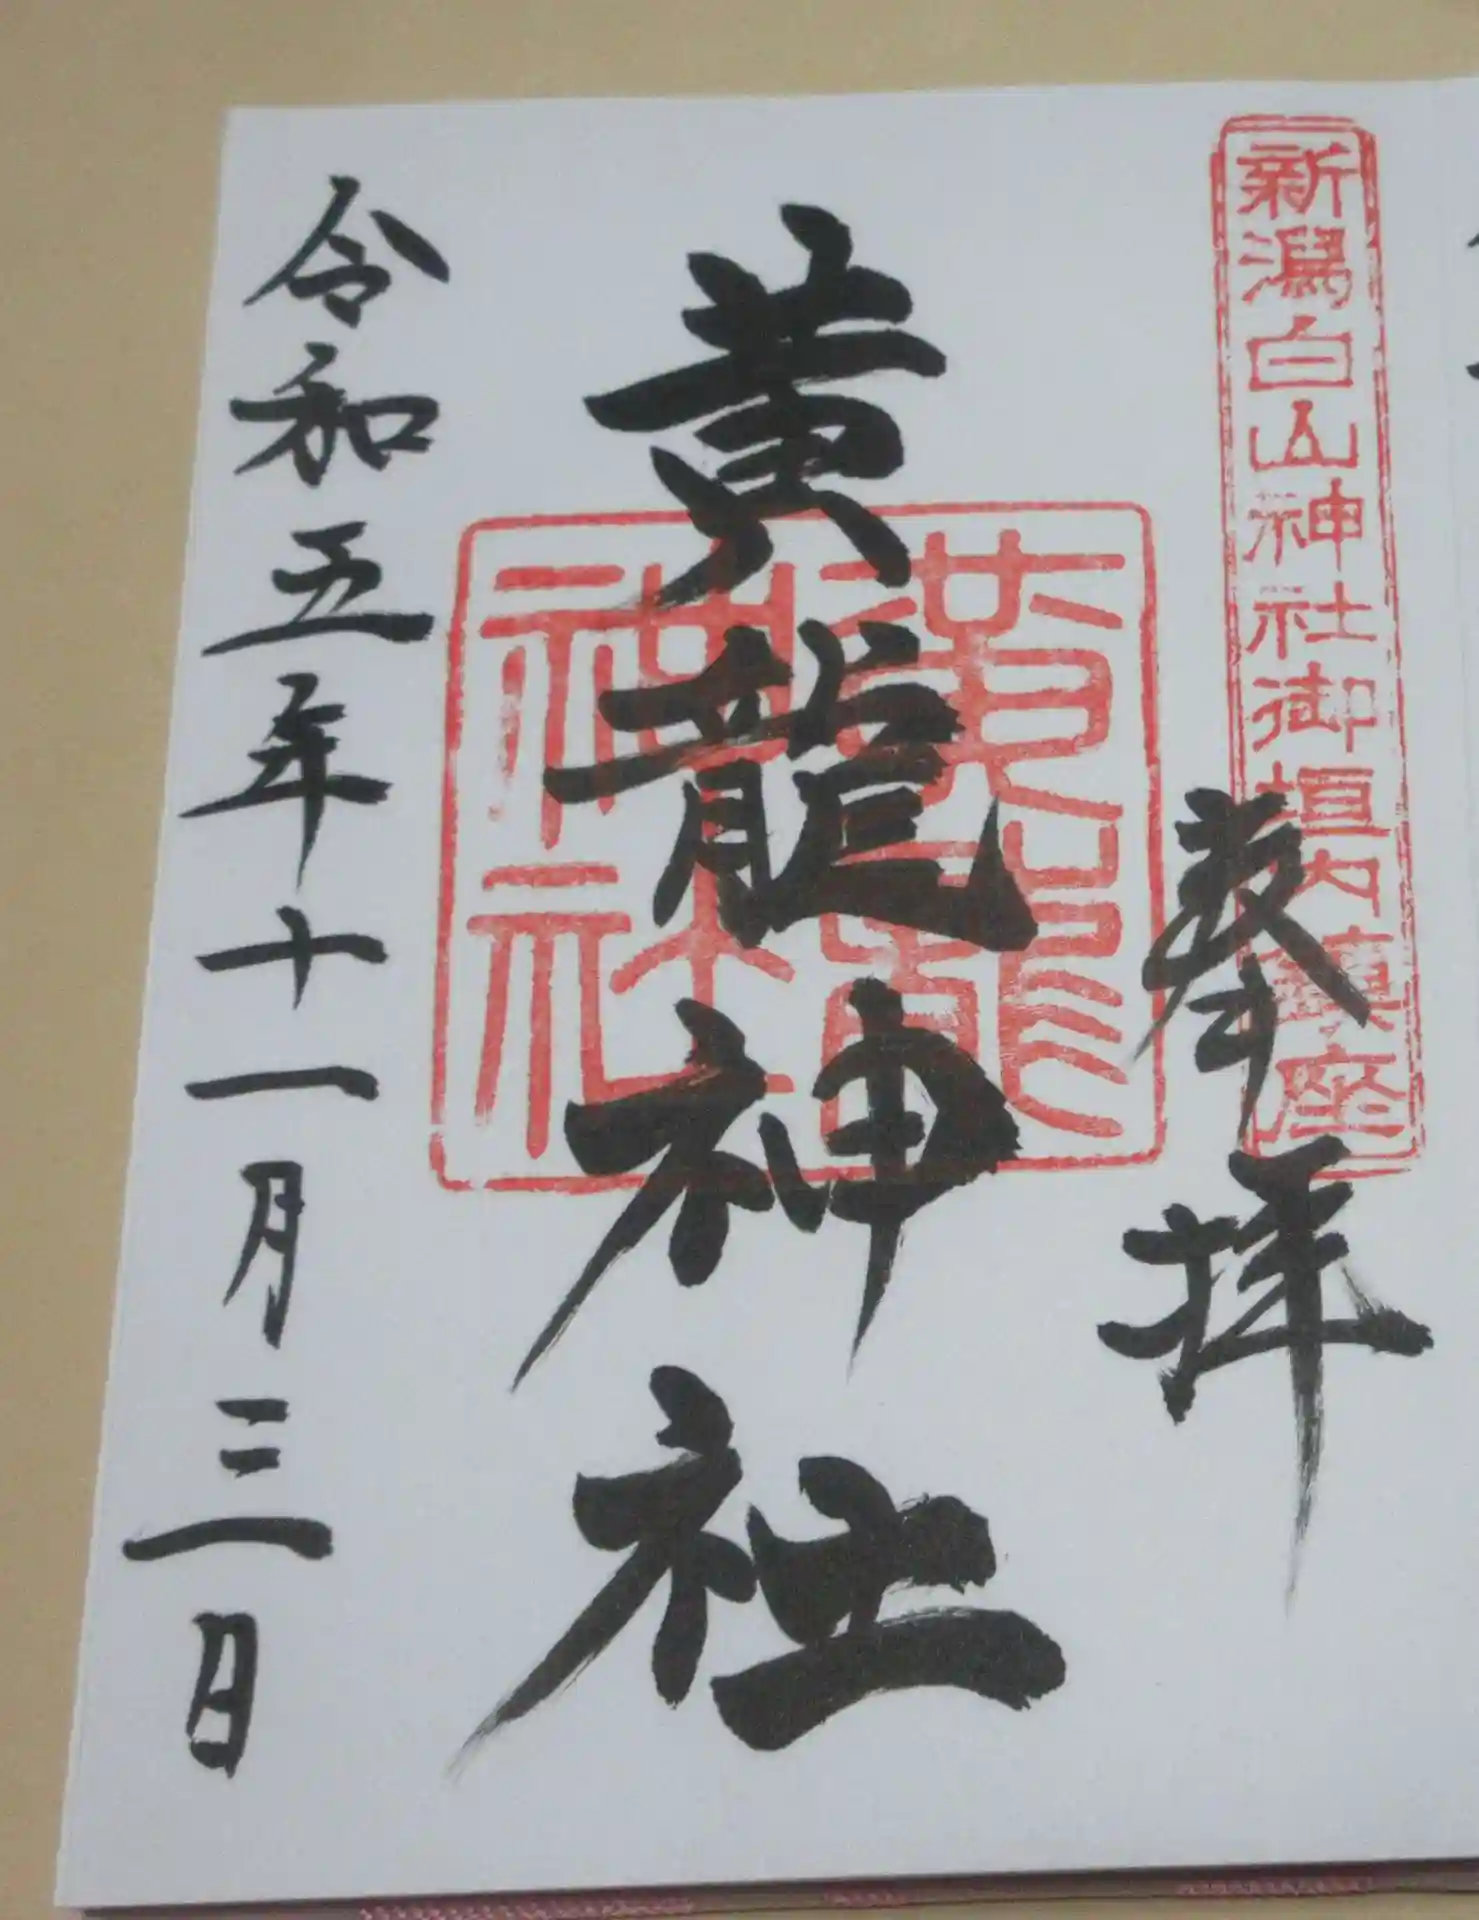 新潟白山神社御垣内鎮座
奉拝
黄龍神社
黄龍
神社
令和五年十一月三日